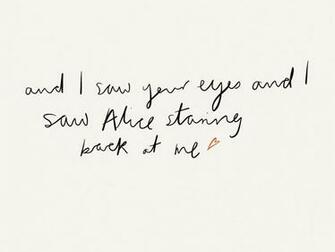 and I saw your eyes and I
saw Alice staring
back at me